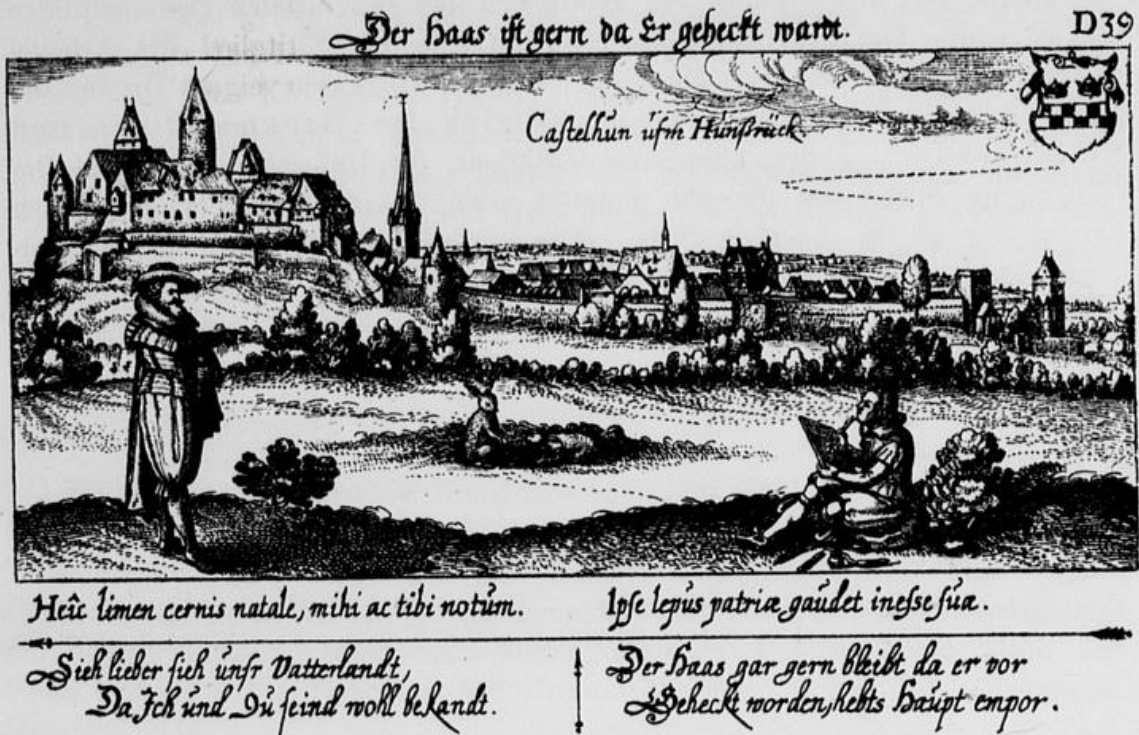 Der Haas ist gern da Er geheckt wardt.
D39
Castelhun ufm Hunßrück
Heîc limen cernis natale, mihi ac tibi notum. Ipse lepus patriæ, gaudet inesse suæ.
Sieh lieber sieh unsr Vatterlandt,
Da Ich und Du seind wohl bekandt.
Der Haas gar gern bleibt da er vor
Geheckt worden, hebts Haupt empor.